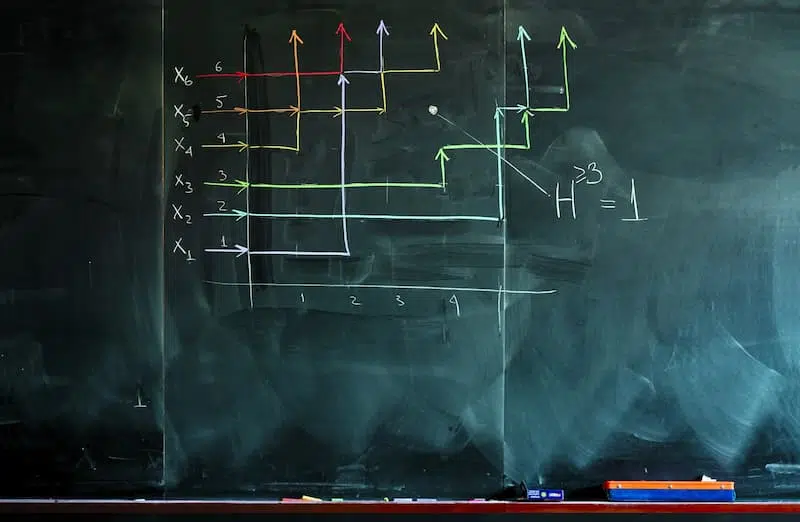 X₆ 6
X₅ 5
X₄ 4
X₃ 3
X₂ 2
X₁ 1
H≥3 = 1
1 2 3 4
1